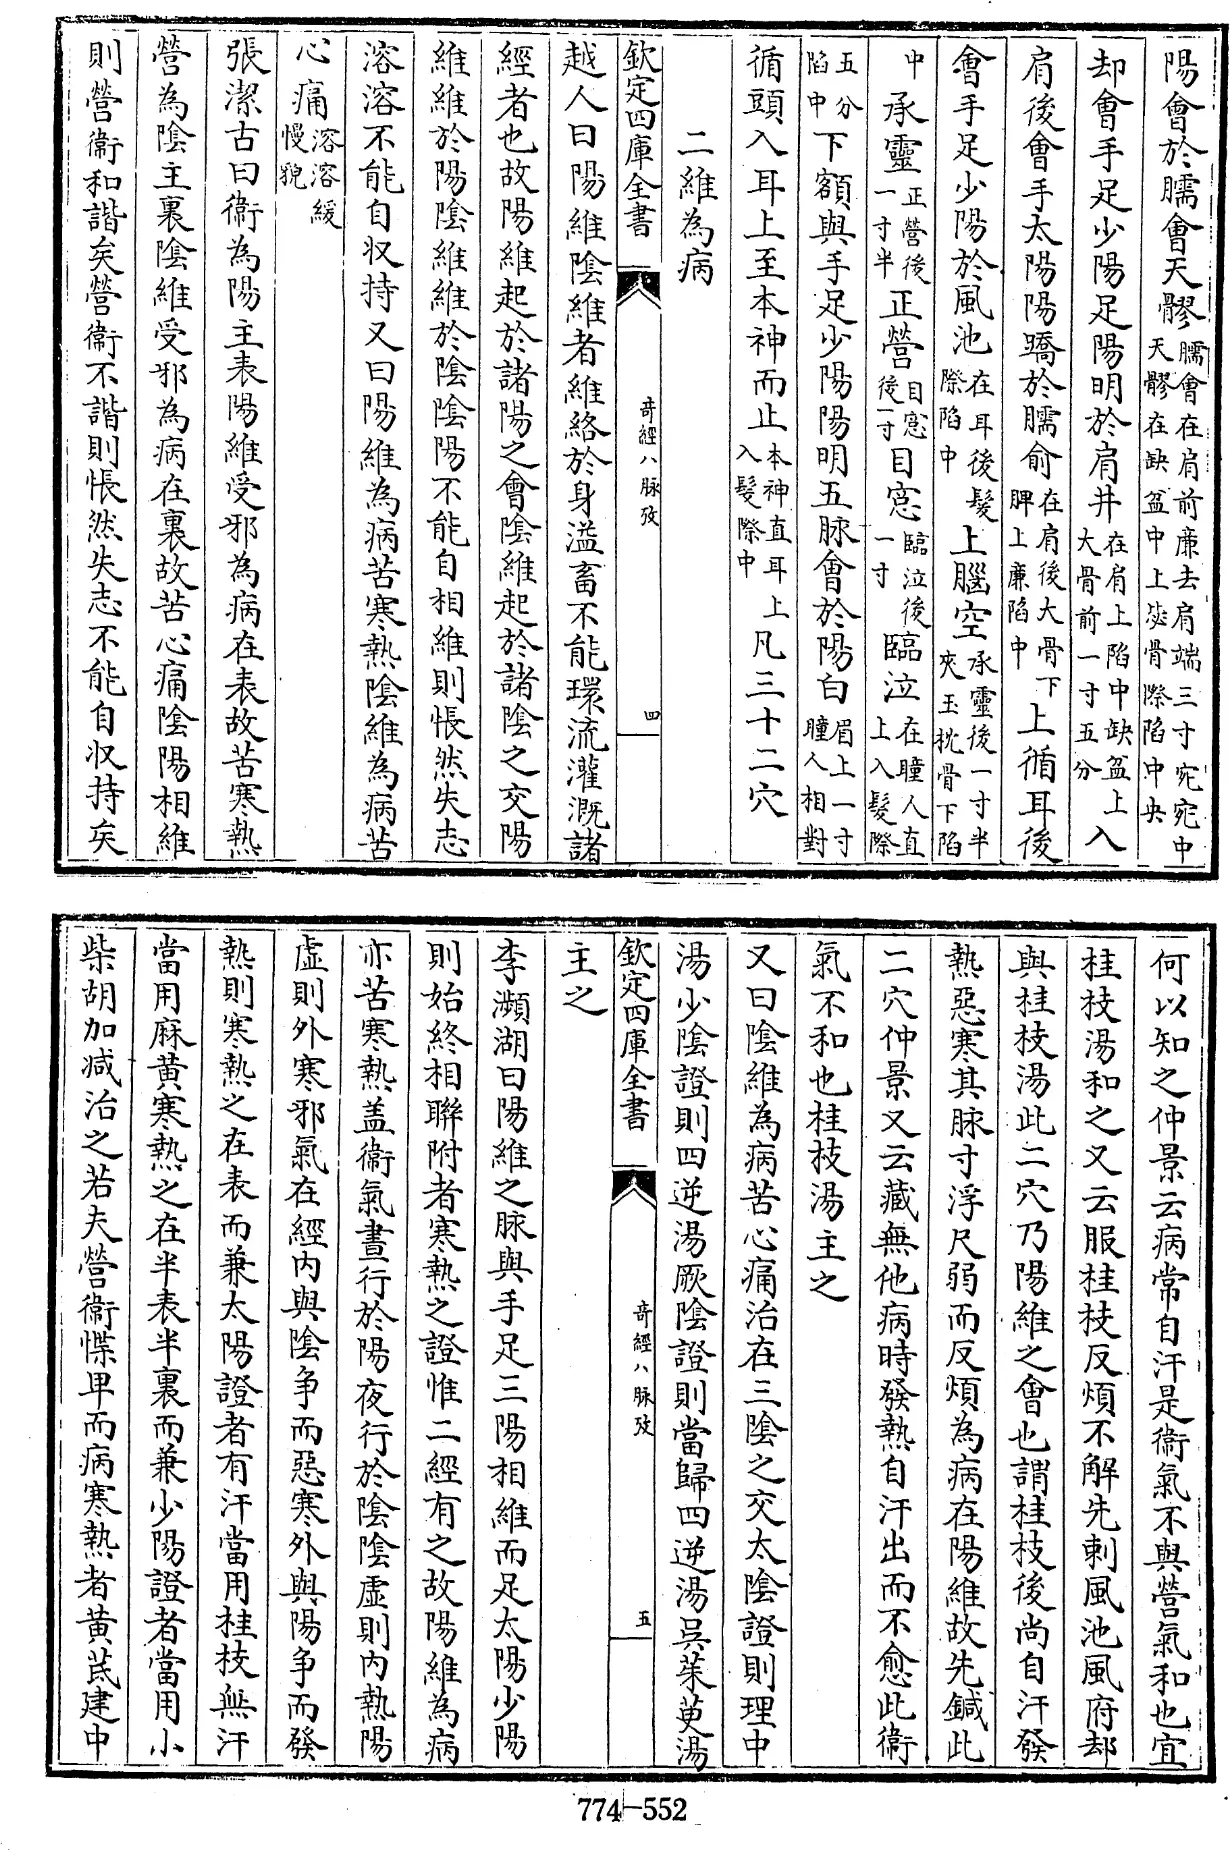 陽會於臑會天髎臑會在肩前廉去肩端三寸宛宛中天髎在缺盆中上毖骨際陷中央
却會手足少陽足陽明於肩井在肩上陷中缺盆上大骨前一寸五分入
肩後會手太陽陽蹻於臑俞在肩後大骨下胛上廉陷中上循耳後
會手足少陽於風池在耳後髮際陷中上腦空承靈後一寸半夾玉枕骨下陷
中承靈正營後一寸半正營目窓後一寸目窓臨泣後一寸臨泣在瞳人直上入髮際
五分陷中下額與手足少陽陽明五脉會於陽白眉上一寸瞳人相對
循頭入耳上至本神而止本神直耳上入髮際中凡三十二穴
二維為病
欽定四庫全書
奇經八脉攷
四
越人曰陽維陰維者維絡於身溢畜不能環流灌溉諸
經者也故陽維起於諸陽之會陰維起於諸陰之交陽
維維於陽陰維維於陰陰陽不能自相維則悵然失志
溶溶不能自収持又曰陽維為病苦寒熱陰維為病苦
心痛溶溶緩慢貌
張潔古曰衛為陽主表陽維受邪為病在表故苦寒熱
營為陰主裏陰維受邪為病在裏故苦心痛陰陽相維
則營衛和諧矣營衛不諧則悵然失志不能自収持矣
何以知之仲景云病常自汗是衛氣不與營氣和也宜
桂枝湯和之又云服桂枝反煩不解先刺風池風府却
與桂枝湯此二穴乃陽維之會也謂桂枝後尚自汗發
熱惡寒其脉寸浮尺弱而反煩為病在陽維故先鍼此
二穴仲景又云藏無他病時發熱自汗出而不愈此衛
氣不和也桂枝湯主之
又曰陰維為病苦心痛治在三陰之交太陰證則理中
湯少陰證則四逆湯厥陰證則當歸四逆湯吳茱萸湯
欽定四庫全書
奇經八脉攷
五
主之
李瀕湖曰陽維之脉與手足三陽相維而足太陽少陽
則始終相聯附者寒熱之證惟二經有之故陽維為病
亦苦寒熱盖衛氣晝行於陽夜行於陰陰虛則内熱陽
虛則外寒邪氣在經内與陰争而惡寒外與陽争而發
熱則寒熱之在表而兼太陽證者有汗當用桂枝無汗
當用麻黄寒熱之在半表半裏而兼少陽證者當用小
柴胡加减治之若夫營衛惵卑而病寒熱者黄芪建中
774-552